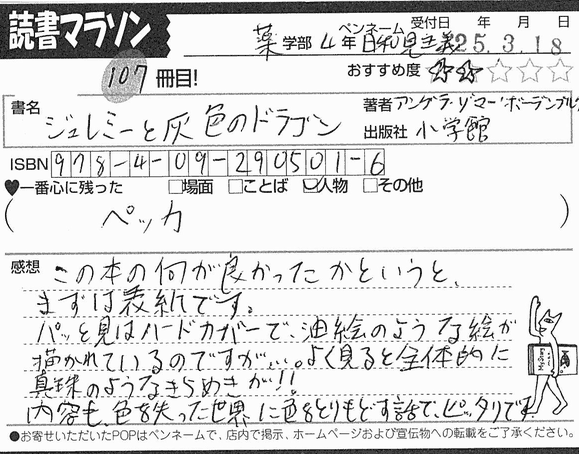 読書マラソン
ペンネーム 受付日 年 月 日
薬 学部 4年 日和見主義 25.3.18
107 冊目!
おすすめ度 ☆☆☆☆☆
書名 ジュレミーと灰色のドラゴン
著者 アンゲラ・ゾマー・ボーデンブルク
出版社 小学館
ISBN 978-4-09-290501-6
♥一番心に残った □場面 □ことば ☑人物 □その他
( ペッカ )
感想 この本の何が良かったかというと、
まずは表紙です。
パッと見はハードカバーで、油絵のような絵が
描かれているのですが…。よく見ると全体的に
真珠のようなきらめきが!!
内容も、色を失った世界に色をとりもどす話で、ピッタリです
●お寄せいただいたPOPはペンネームで、店内で掲示、ホームページおよび宣伝物への転載をご了承ください。